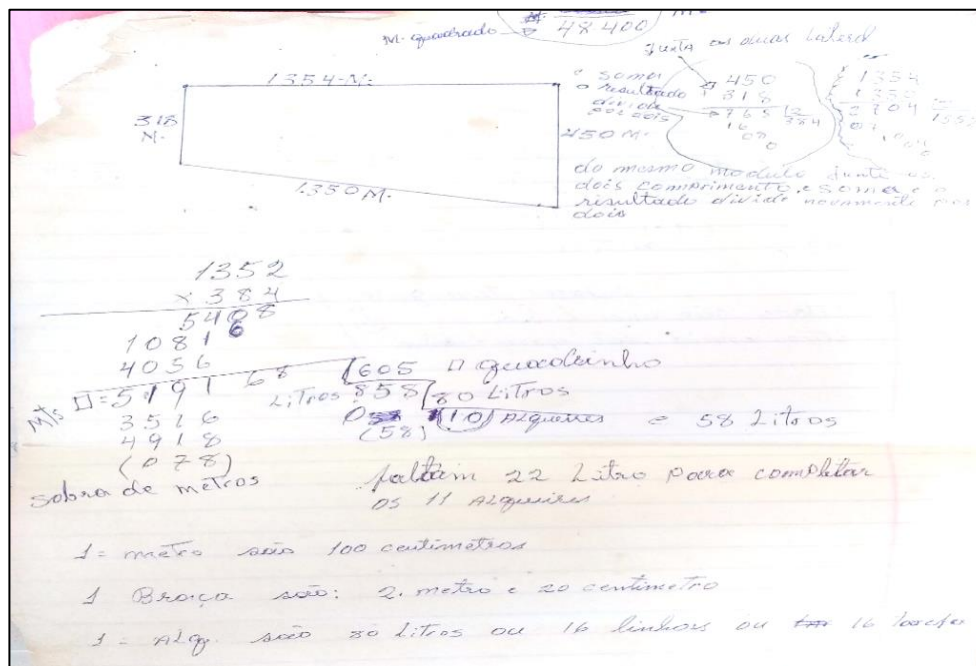 M. quadrado 48 400
Junta as duas Lateral
1354 M.
318
M.
450 M.
1350 M.
soma
o resultado
divide
por dois
450
318
768 2
16 384
08
0
1354
1350
2704
07
do mesmo modulo junta os
dois comprimento, e soma e o
resultado divide novamente por
dois
1352
x 384
5408
10816
4056
M/s = 519168 605 quadrinho
3516 Litros 858 80 Litros
4918 (58) 10 Alqueires e 58 Litros
(078)
sobra de metros
faltam 22 Litro para completar
os 11 Alqueires
1 = metro são 100 centimetros
1 Braça são: 2. metro e 20 centimetro
1 = Alq. são 80 Litros ou 16 linhas ou 16 tarefa